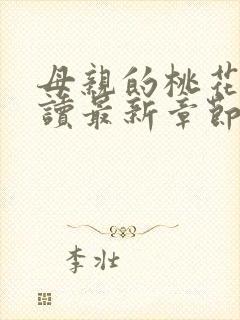 母親的桃花
讀最新章節
李壮